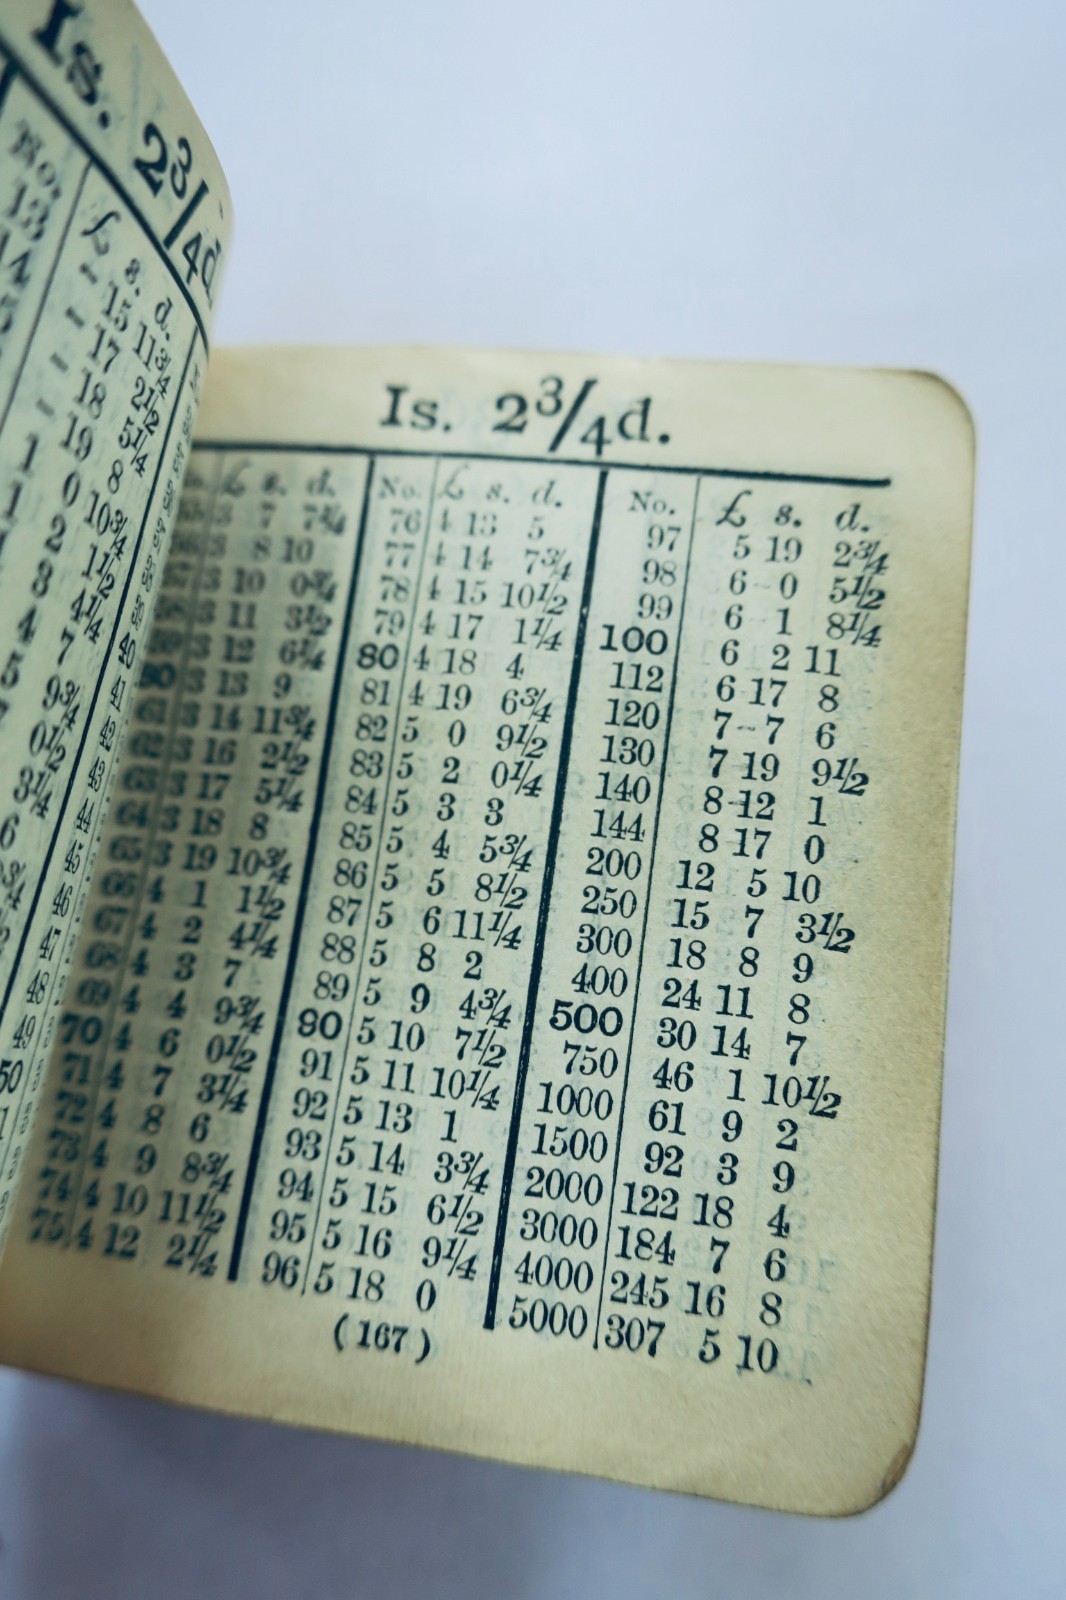 Is. 2¾d
No.
£ s. d.
13 - 15 11¾
14 - 17 2½
- 18 5¼
- 19 8
1 0 10¾
1 2 1½
3 4¼
4 7
5 9¾
0½
3¼
6
40
41
42
43
44
45
46
47
48
49
50
Is. 2¾d.
£ s. d.
3 7 7¼
3 8 10
3 10 0¾
3 11 3½
3 12 6¼
60 3 13 9
61 3 14 11¾
62 3 16 2½
63 3 17 5¼
64 3 18 8
65 3 19 10¾
66 4 1 1½
67 4 2 4¼
68 4 3 7
69 4 4 9¾
70 4 6 0½
71 4 7 3¼
72 4 8 6
73 4 9 8¾
74 4 10 11½
75 4 12 2¼
No. £ s. d.
76 4 13 5
77 4 14 7¾
78 4 15 10½
79 4 17 1¼
80 4 18 4
81 4 19 6¾
82 5 0 9½
83 5 2 0¼
84 5 3 3
85 5 4 5¾
86 5 5 8½
87 5 6 11¼
88 5 8 2
89 5 9 4¾
90 5 10 7½
91 5 11 10¼
92 5 13 1
93 5 14 3¾
94 5 15 6½
95 5 16 9¼
96 5 18 0
No. £ s. d.
97 5 19 2¾
98 6 0 5½
99 6 1 8¼
100 6 2 11
112 6 17 8
120 7 7 6
130 7 19 9½
140 8 12 1
144 8 17 0
200 12 5 10
250 15 7 3½
300 18 8 9
400 24 11 8
500 30 14 7
750 46 1 10½
1000 61 9 2
1500 92 3 9
2000 122 18 4
3000 184 7 6
4000 245 16 8
5000 307 5 10
(167)